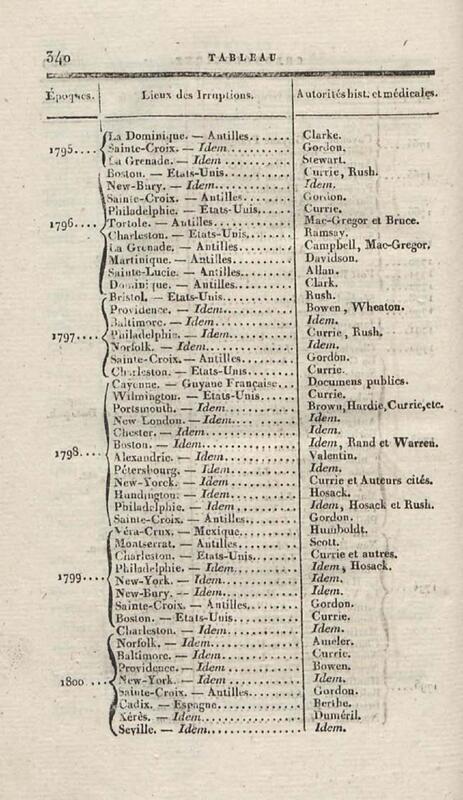 340 TABLEAU
Époques. Lieux des Irruptions. Autorités hist. et médicales.
La Dominique. — Antilles....... Clarke.
1795.... Sainte-Croix. — Idem.......... Gordon.
La Grenade. — Idem........... Stewart.
Boston. — Etats-Unis.......... Currie, Rush.
New-Bury. — Idem............. Idem.
Sainte-Croix. — Antilles........ Gordon.
Philadelphie. — Etats-Unis..... Currie.
1796.... Tortole. — Antilles............ Mac-Gregor et Bruce.
Charleston. — Etats-Unis....... Ramsay.
La Grenade. — Antilles........ Campbell, Mac-Gregor.
Martinique. — Antilles......... Davidson.
Sainte-Lucie. — Antilles........ Allan.
Dominique. — Antilles......... Clark.
Bristol. — Etats-Unis.......... Rush.
Providence. — Idem........... Bowen, Wheaton.
Baltimore. — Idem............ Idem.
1797.... Philadelphie. — Idem.......... Currie, Rush.
Norfolk. — Idem.............. Idem.
Sainte-Croix. — Antilles........ Gordon.
Charleston. — Etats-Unis....... Currie.
Cayenne. — Guyane Française... Documens publics.
Wilmington. — Etats-Unis...... Currie.
Portsmouth. — Idem........... Brown, Hardie, Currie, etc.
New London. — Idem.......... Idem.
Chester. — Idem.............. Idem.
Boston. — Idem............... Idem, Rand et Warren.
1798.... Alexandrie. — Idem........... Valentin.
Pétersbourg. — Idem.......... Idem.
New-Yorck. — Idem........... Currie et Auteurs cités.
Hundington. — Idem.......... Hosack.
Philadelphie. — Idem.......... Idem, Hosack et Rush.
Sainte-Croix. — Antilles........ Gordon.
Véra-Crux. — Mexique......... Humboldt.
Montserrat. — Antilles......... Scott.
Charleston. — Etats-Unis....... Currie et autres.
Philadelphie. — Idem.......... Idem, Hosack.
1799.... New-York. — Idem............ Idem.
New-Bury. — Idem............ Idem.
Sainte-Croix. — Antilles........ Gordon.
Boston. — Etats-Unis.......... Currie.
Charleston. — Idem........... Idem.
Norfolk. — Idem.............. Ameler.
Baltimore. — Idem............ Currie.
Providence. — Idem........... Bowen.
1800.... New-York. — Idem............ Idem.
Sainte-Croix. — Antilles........ Gordon.
Cadix. — Espagne............. Berthe.
Xérès. — Idem................ Duméril.
Seville. — Idem............... Idem.